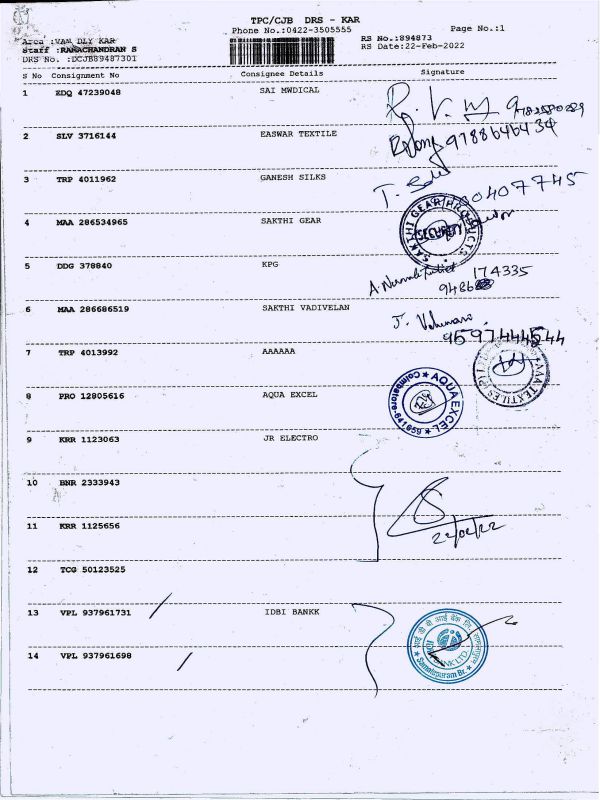 TPC/CJB DRS - KAR
Phone No.:0422-3505555
Page No.:1
Area :VAM DLY KAR
RS No.:894873
Staff :RAMACHANDRAN S
RS Date:22-Feb-2022
DRS No. :DCJB89487301
S No Consignment No Consignee Details Signature
1 EDQ 47239048 SAI MWDICAL
2 SLV 3716144 EASWAR TEXTILE
9788646434
3 TRP 4011962 GANESH SILKS
T.
4 MAA 286534965 SAKTHI GEAR
SAKTHI GEAR PRODUCTS
SECURITY
5 DDG 378840 KPG
174335
6 MAA 286686519 SAKTHI VADIVELAN
J.
7 TRP 4013992 AAAAAA
8 PRO 12805616 AQUA EXCEL
AQUA EXCEL
Coimbatore-641659
9 KRR 1123063 JR ELECTRO
10 BNR 2333943
11 KRR 1125656
22/02/22
12 TCG 50123525
13 VPL 937961731 / IDBI BANKK
BANK LTD.
14 VPL 937961698 /